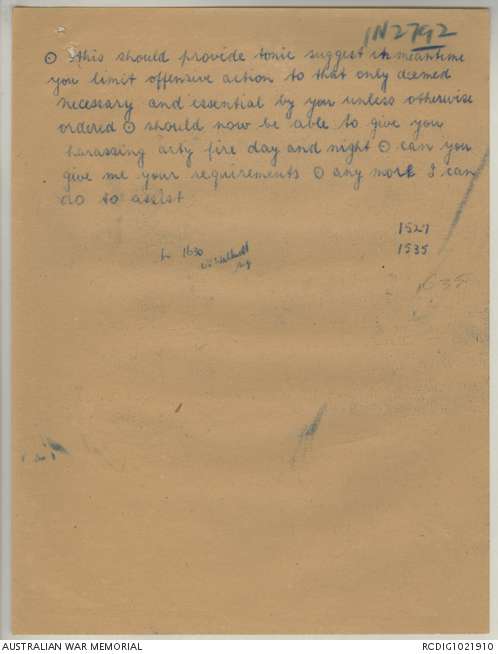 IN2792
⊙ this should provide tonic suggest in meantime
you limit offensive action to that only deemed
necessary and essential by you unless otherwise
ordered ⊙ should now be able to give you
harassing arty fire day and night ⊙ can you
give me your requirements ⊙ any more I can
do to assist
1527
1630
1535
AUSTRALIAN WAR MEMORIAL
RCDIG1021910